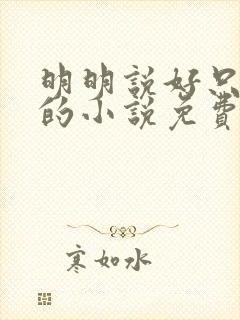 明明説好只
的小説免費
寒如水